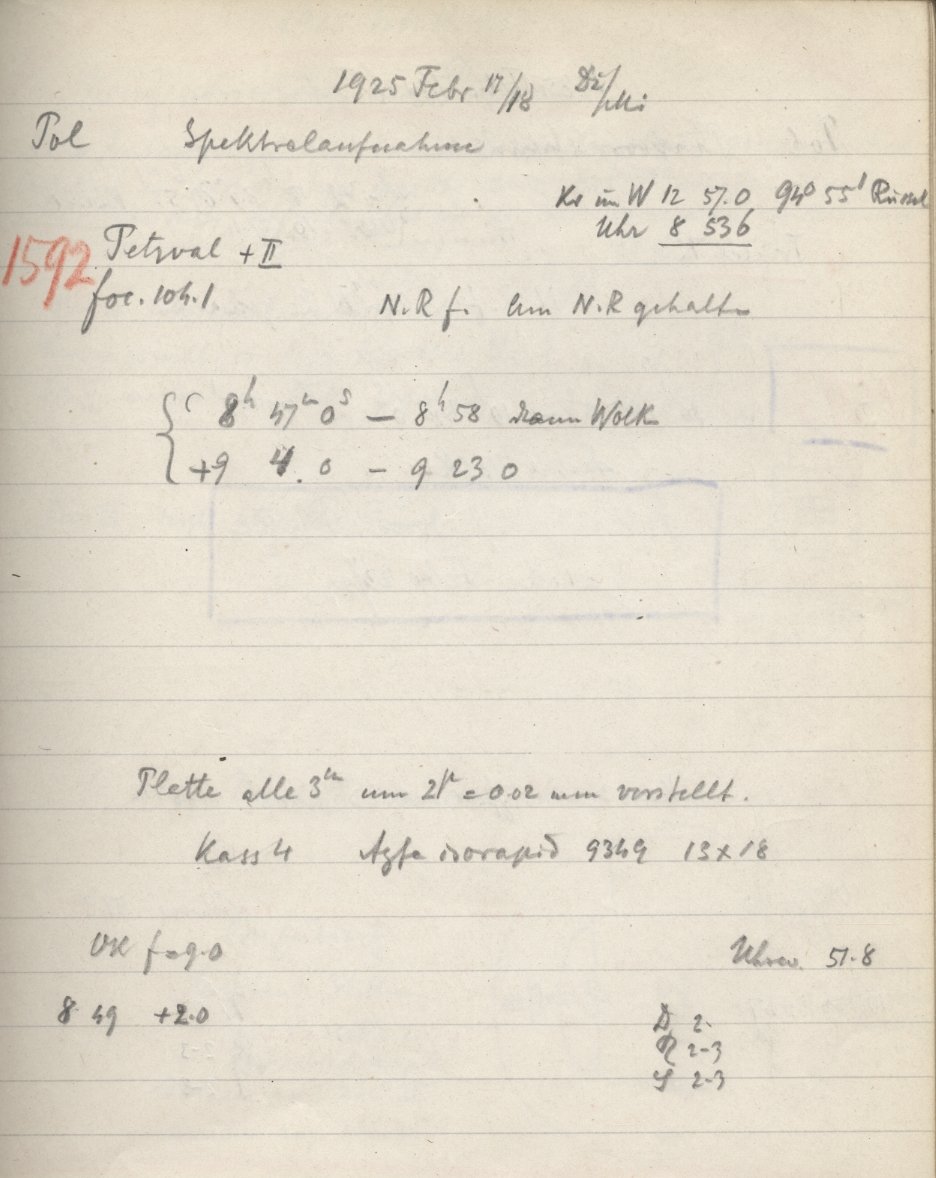 1925 Febr 17/18 Di/Mi
Pol Spektralaufnahme
Kr im W 12 57.0 94° 55'
Uhr 8 53 6
1592 Petzval + II
foc. 104.1 N.R f. Um N.R gehalten
8h 47m 0s — 8h 58 dann Wolk
+9 4. 0 — 9 23 0
Platte alle 3m um 2μ = 0.02 mm verstellt.
Kass 4 Agfa isorapid 9349 13 x 18
f = 9.0 Uhrw. 51.8
8 49 +2.0
D 2.
R 2-3
S 2-3